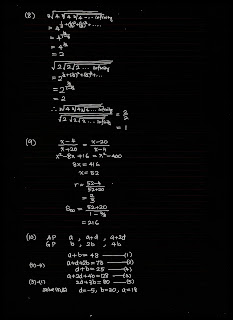 (8) ∛4 ∛4 ∛4 ... infinity
= 4^(1/3+(1/3)²+(1/3)³+...)
= 4^((1/3)/(1-1/3))
= 4^(1/2)
= 2
√2√2√2 ... infinity
= 2^(1/2+(1/2)²+(1/2)³+...)
= 2^((1/2)/(1-1/2))
= 2
∴ ∛4∛4∛4... infinity / √2√2√2... infinity = 2/2
= 1
(9) (x-4)/(x+20) = (x-20)/(x-4)
x²-8x+16 = x²-400
8x = 416
x = 52
r = (52-4)/(52+20)
= 2/3
S∞ = (52+20)/(1-2/3)
= 216
(10) AP a, a+d, a+2d
GP b, 2b, 4b
a+b = 48 —(1)
a+d+2b = 73 —(2)
(2)-(1) d+b = 25 —(4)
a+2d+4b = 128 —(3)
(3)-(1) 2d+3b = 80 —(5)
d=-5, b=30, a=18